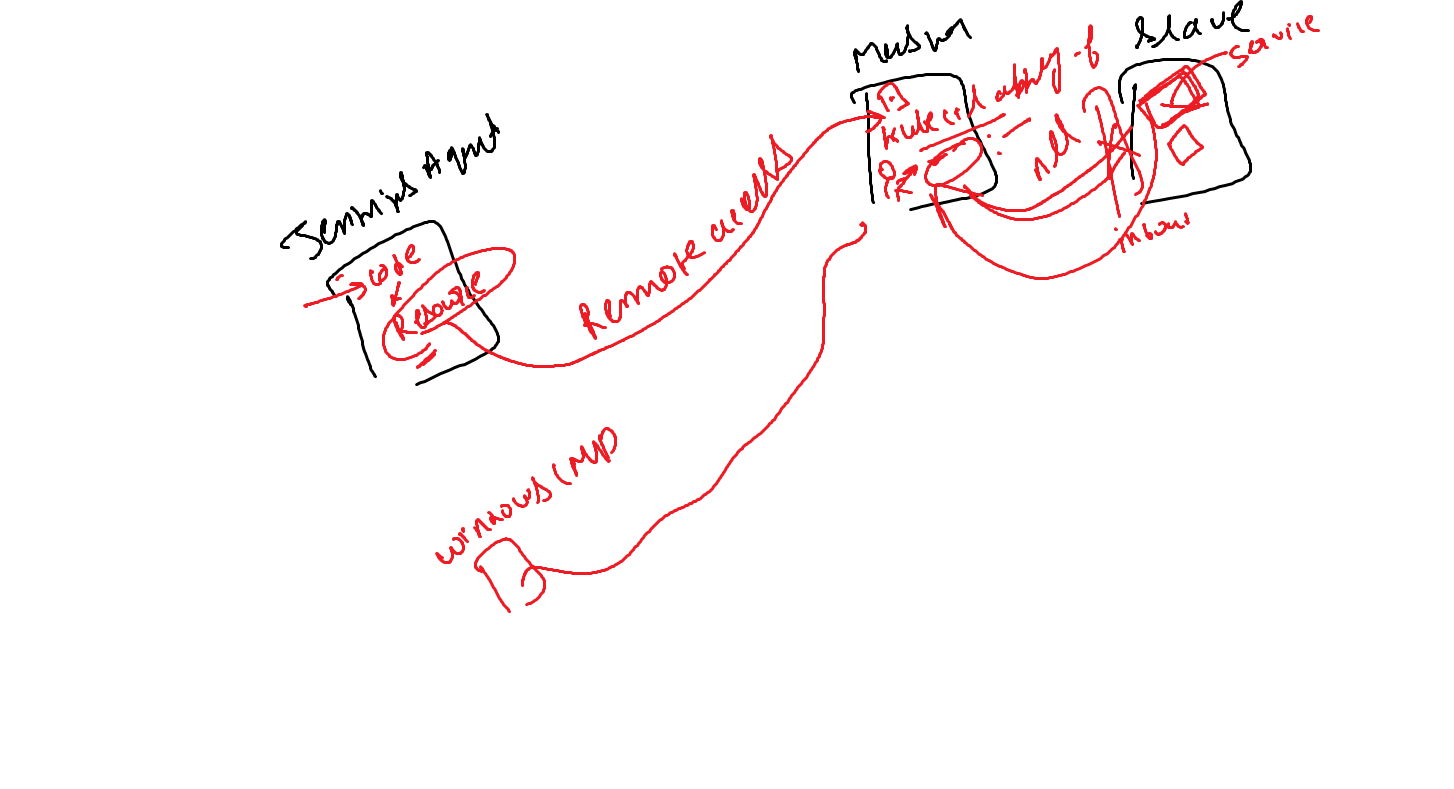 Jennkins Agent
code
Resource
Remote access
Master
kubectl apply -f
Slave
service
inboun
windows CMD